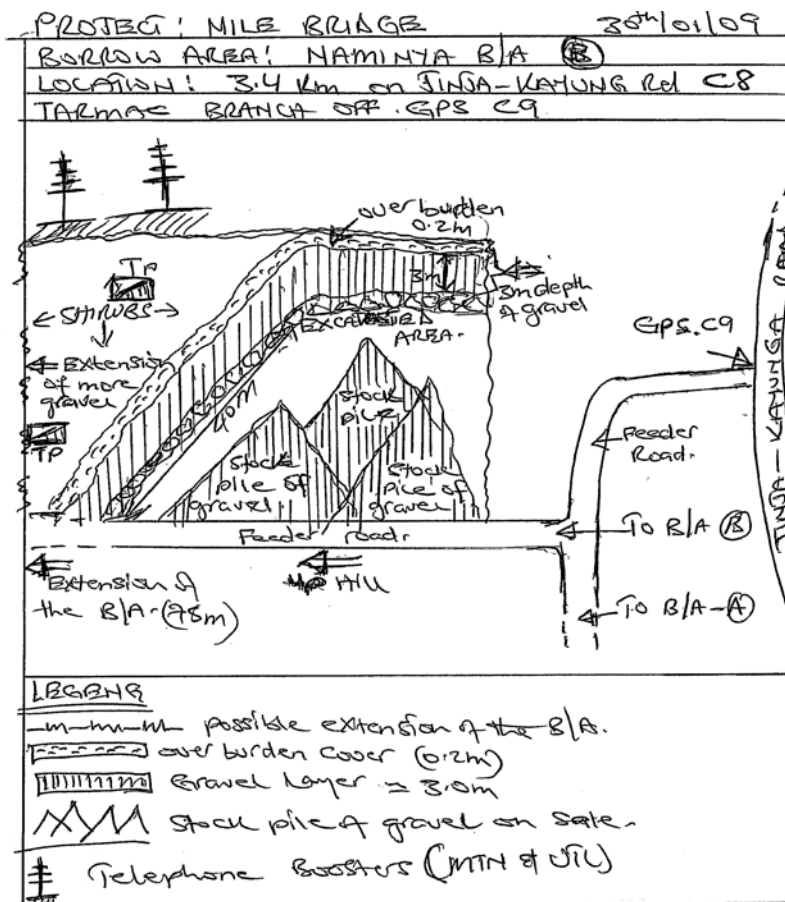 PROJECT: MILE BRIDGE 30th/01/09
BORROW AREA: NAMINYA B/A B
LOCATION: 3.4 Km on JINJA-KAYUNG Rd C8
TARMAC BRANCH OFF. GPS C9
over burden
0.2m
TP
3m
3m depth
of gravel
← SHRUBS →
EXCAVATED
AREA.
GPS.C9
Extension
of more
gravel
40m
Stock
pile
Feeder
Road.
TP
Stock
pile of
gravel
Stock
pile of
gravel
JINJA - KAYUNGA
Feeder road.
TO B/A B
Extension of
the B/A-(78m)
H/U
TO B/A-A
LEGEND
possible extension of the B/A.
over burden cover (0.2m)
Gravel Layer ≃ 3.0m
Stock pile of gravel on sate.
Telephone Boosters (MTN & UTL)